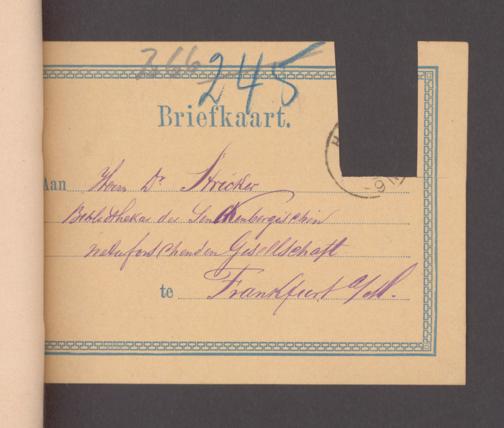 366 245
Briefkaart.
Aan Herrn Dr. Stricker
Bibliothekar der Senckenbergischen
naturforschenden Gesellschaft
te Frankfurt a/M.